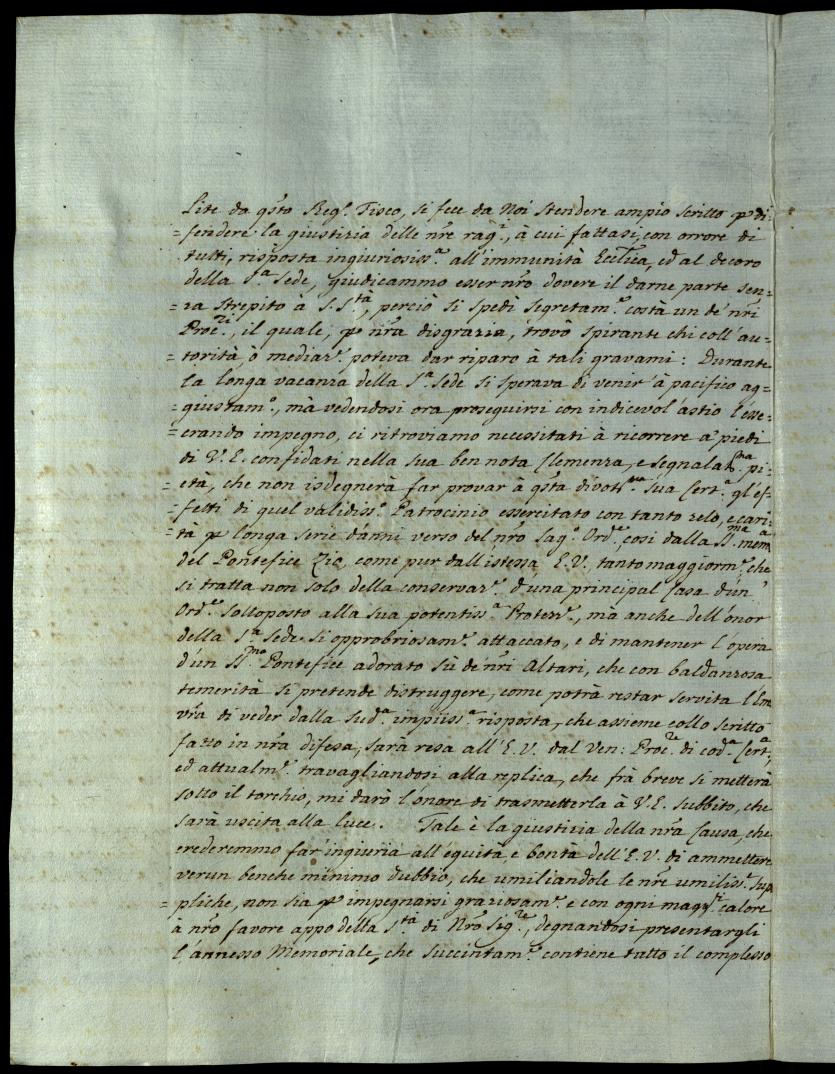 Lite da q̃sto Reg.º Fisco, si fece da Noi stendere ampio scritto p di
=fendere la giustizia delle ñre rag.ⁱ, à cui fattasi, con orrore di
tutti, risposta ingiuriosiss.ª all'immunità Eccl̃ica, ed al decoro
della S.ª Sede, giudicammo esser ñro dovere il darne parte sen=
=za strepito à S. S.tà, perciò si spedì segretam.e costà un de' ñri
Proc.ri, il quale, p ñra disgrazia, trovò spirante chi coll'au=
=torità, ò mediaz.e poteva dar riparo à tali gravami: Durante
la longa vacanza della S.ª Sede si sperava di venir à pacifico ag=
=giustam.º, mà vedendosi ora proseguirsi con indicevol'astio l'esse=
=crando impegno, ci ritroviamo necessitati à ricorrere a' piedi
di V. E. confidati nella sua ben nota Clemenza, e segnalat.ma pi=
=età, che non isdegnerà far provar à q̃sta divot.ma sua Cert.ª gl'ef=
=fetti di quel validiss.º Patrocinio essercitato con tanto zelo, e cari=
=tà p longa serie d'anni verso del ñro Sag.º Ord.e, così dalla S.ma mem.ª
del Pontefice Zio, come pur dall'istessa E. V., tanto maggiorm.e che
si tratta non solo della conservaz.e d'una principal Casa d'un'
Ord.e sottoposto alla sua potentiss.ª Protez.e, mà anche dell'onor
della S.ª Sede si opprobriosam.e attaccato, e di mantener l'opera
d'un S.mo Pontefice adorato sù de' ñri Altari, che con baldanzosa
temerità si pretende distruggere, come potrà restar servita l'Em
vr̃a di veder dalla sud.ª impiiss.ª risposta, che assieme collo scritto
fatto in ñra difesa, sarà resa all'E. V. dal Ven: Proc.re di cod.ª Cert.ª,
ed attualm.e travagliandosi alla replica, che frà breve si metterà
sotto il torchio, mi darò l'onore di trasmetterla à V. E. subbito, che
sarà uscita alla luce. Tale è la giustizia della ñra Causa, che
crederemmo far'ingiuria all'equità, e bontà dell'E. V. di ammettere
verun benche minimo dubbio, che umiliandole le ñre umiliss.e sup
=pliche, non sia p impegnarsi graziosam.e e con ogni magg.r calore
à ñro favore appo della S.tà di Ñro Sig.re, degnandosi presentargli
l'annesso Memoriale, che succintam.e contiene tutto il complesso